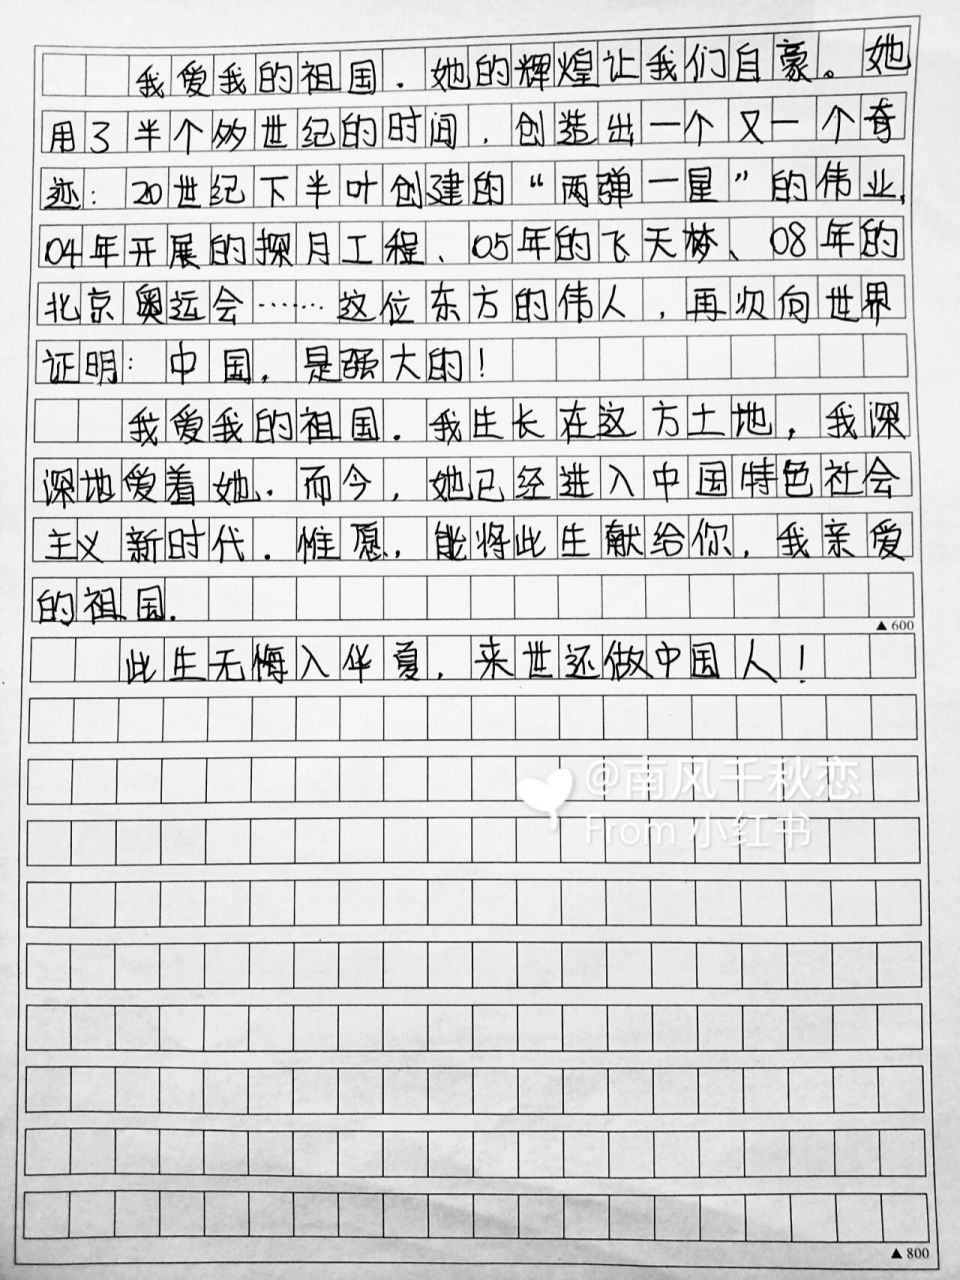 我爱我的祖国．她的辉煌让我们自豪。她
用了半个多世纪的时间，创造出一个又一个奇
迹：20世纪下半叶创建的“两弹一星”的伟业，
04年开展的探月工程、05年的飞天梦、08年的
北京奥运会……这位东方的伟人，再次向世界
证明：中国，是强大的！
我爱我的祖国．我生长在这方土地，我深
深地爱着她．而今，她已经进入中国特色社会
主义新时代．惟愿，能将此生献给你，我亲爱
的祖国．
▲600
此生无悔入华夏，来世还做中国人！
@南风千秋恋
From 小红书
▲800